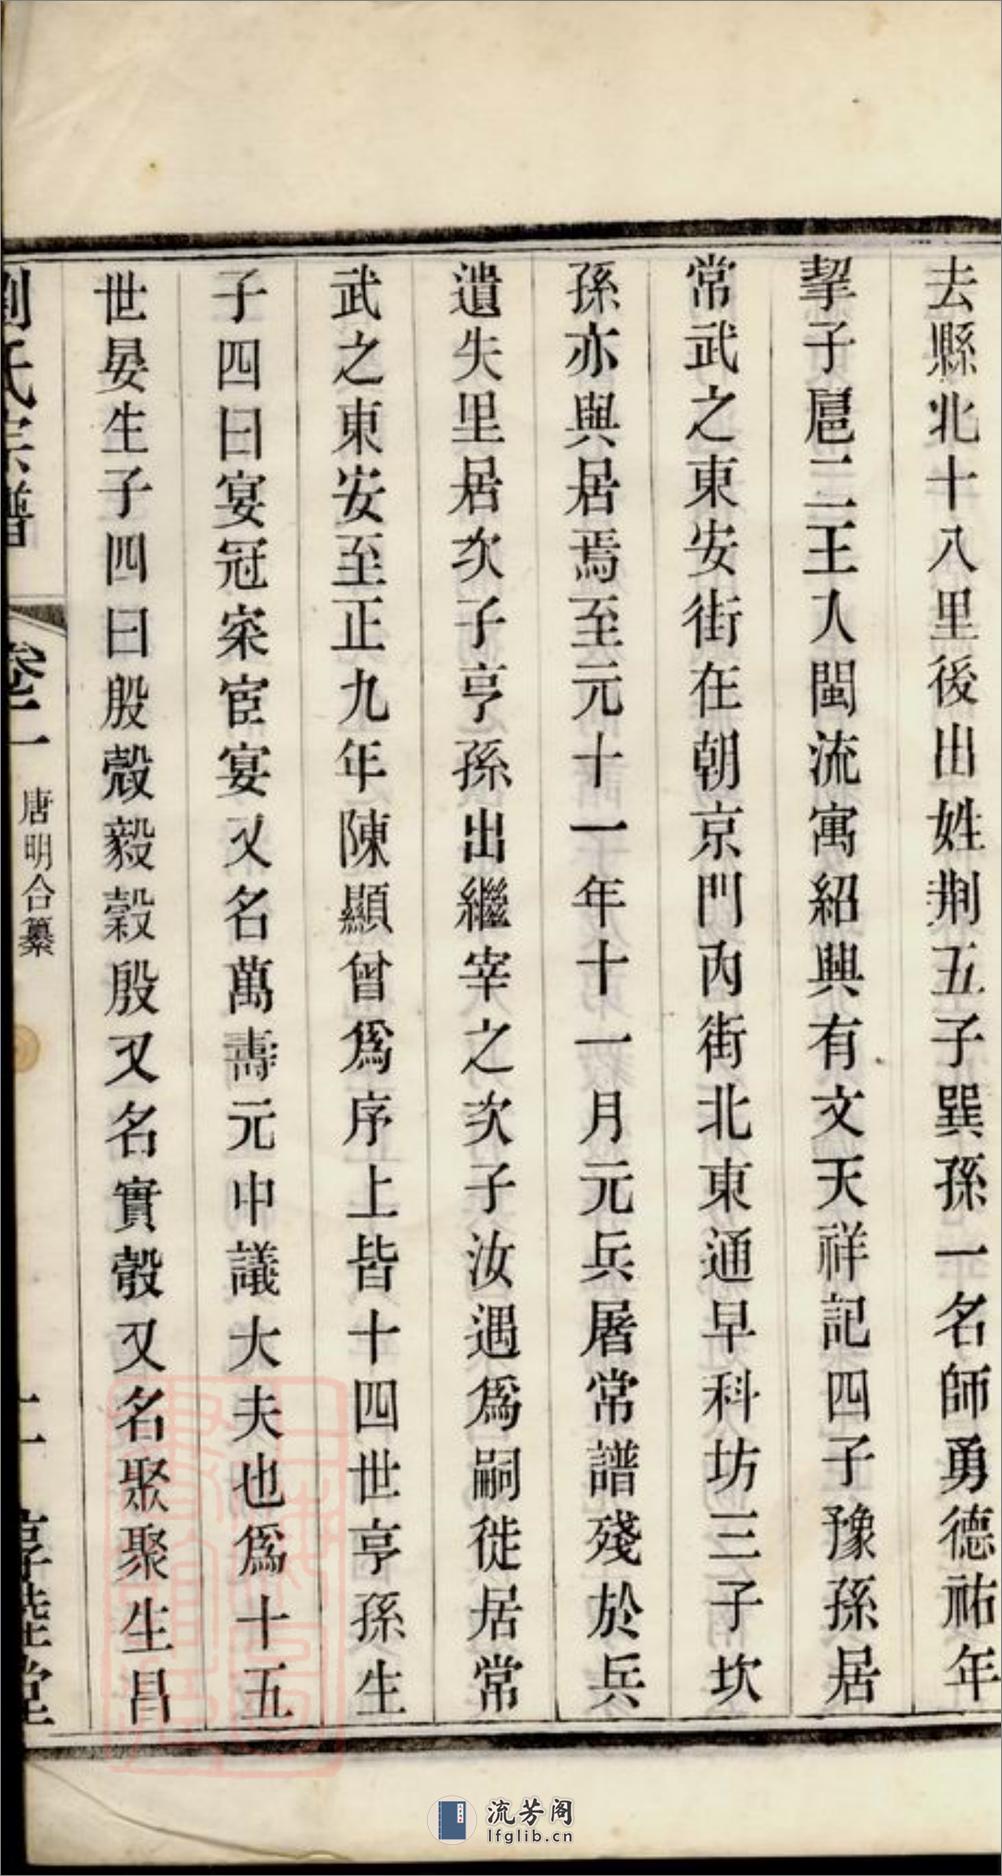 去縣北十八里後出姓荆五子巽孫一名師勇德祐年
挈子扈二王入閩流寓紹興有文天祥記四子豫孫居
常武之東安街在朝京門內街北東通早科坊三子坎
孫亦與居焉至元十一年十一月元兵屠常譜殘於兵
遺失里居次子亨孫出繼宰之次子汝遇爲嗣徙居常
武之東安至正九年陳顯曾爲序上皆十四世亨孫生
子四曰宴冠寀宦宴又名萬壽元中議大夫也爲十五
世晏生子四曰殷殼毅穀殷又名實彀又名聚聚生昌
劉氏宗譜
卷二 唐明合纂
二 惇睦堂
流芳阁
lfglib.cn